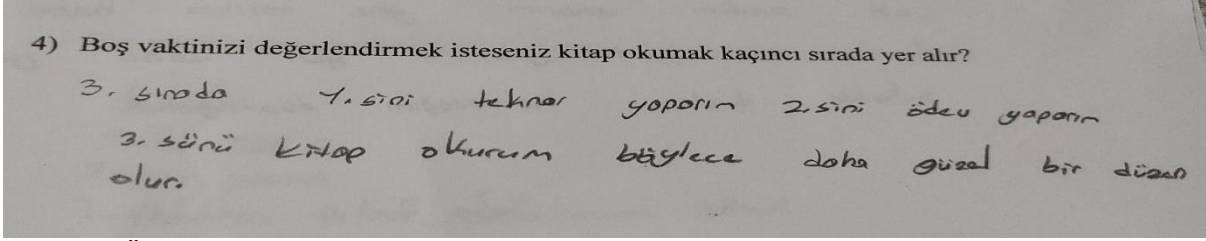 4) Boş vaktinizi değerlendirmek isteseniz kitap okumak kaçıncı sırada yer alır?
3. sırada 1. sini tekrar yaparım 2. sini ödev yaparım
3. sünü kitap okurum böylece daha güzel bir düzen
olur.